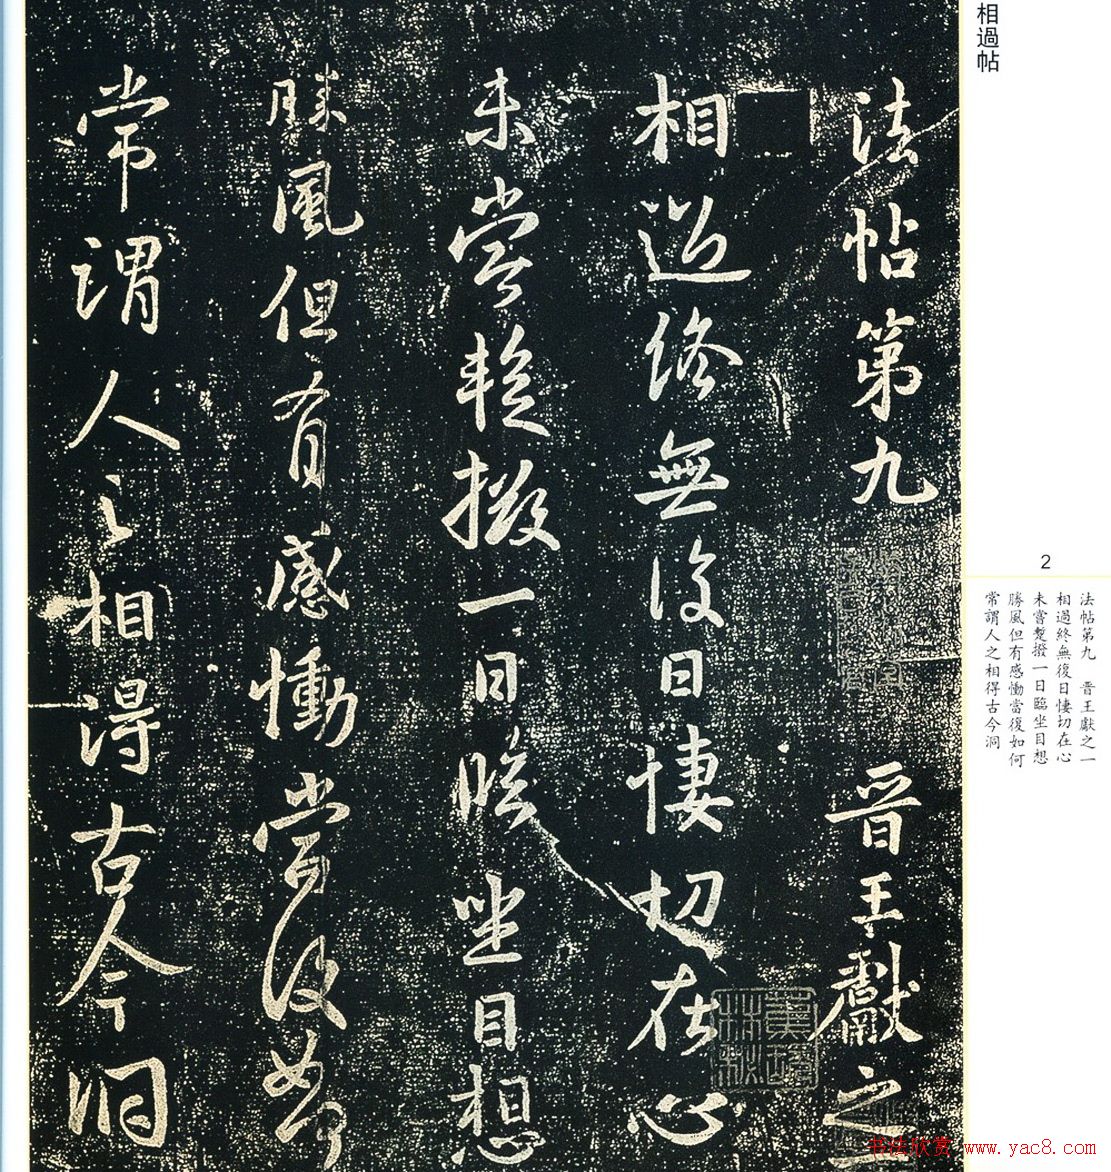 相過帖
法帖第九 晋王獻之一
相過終無復日悽切在心
未嘗蹔撥一日臨坐目想
勝風但有感慟當復如何
常謂人之相得古今洞
2
法帖第九 晋王獻之一
相過終無復日悽切在心
未嘗蹔撥一日臨坐目想
勝風但有感慟當復如何
常謂人之相得古今洞
书法欣赏 www.yac8.com